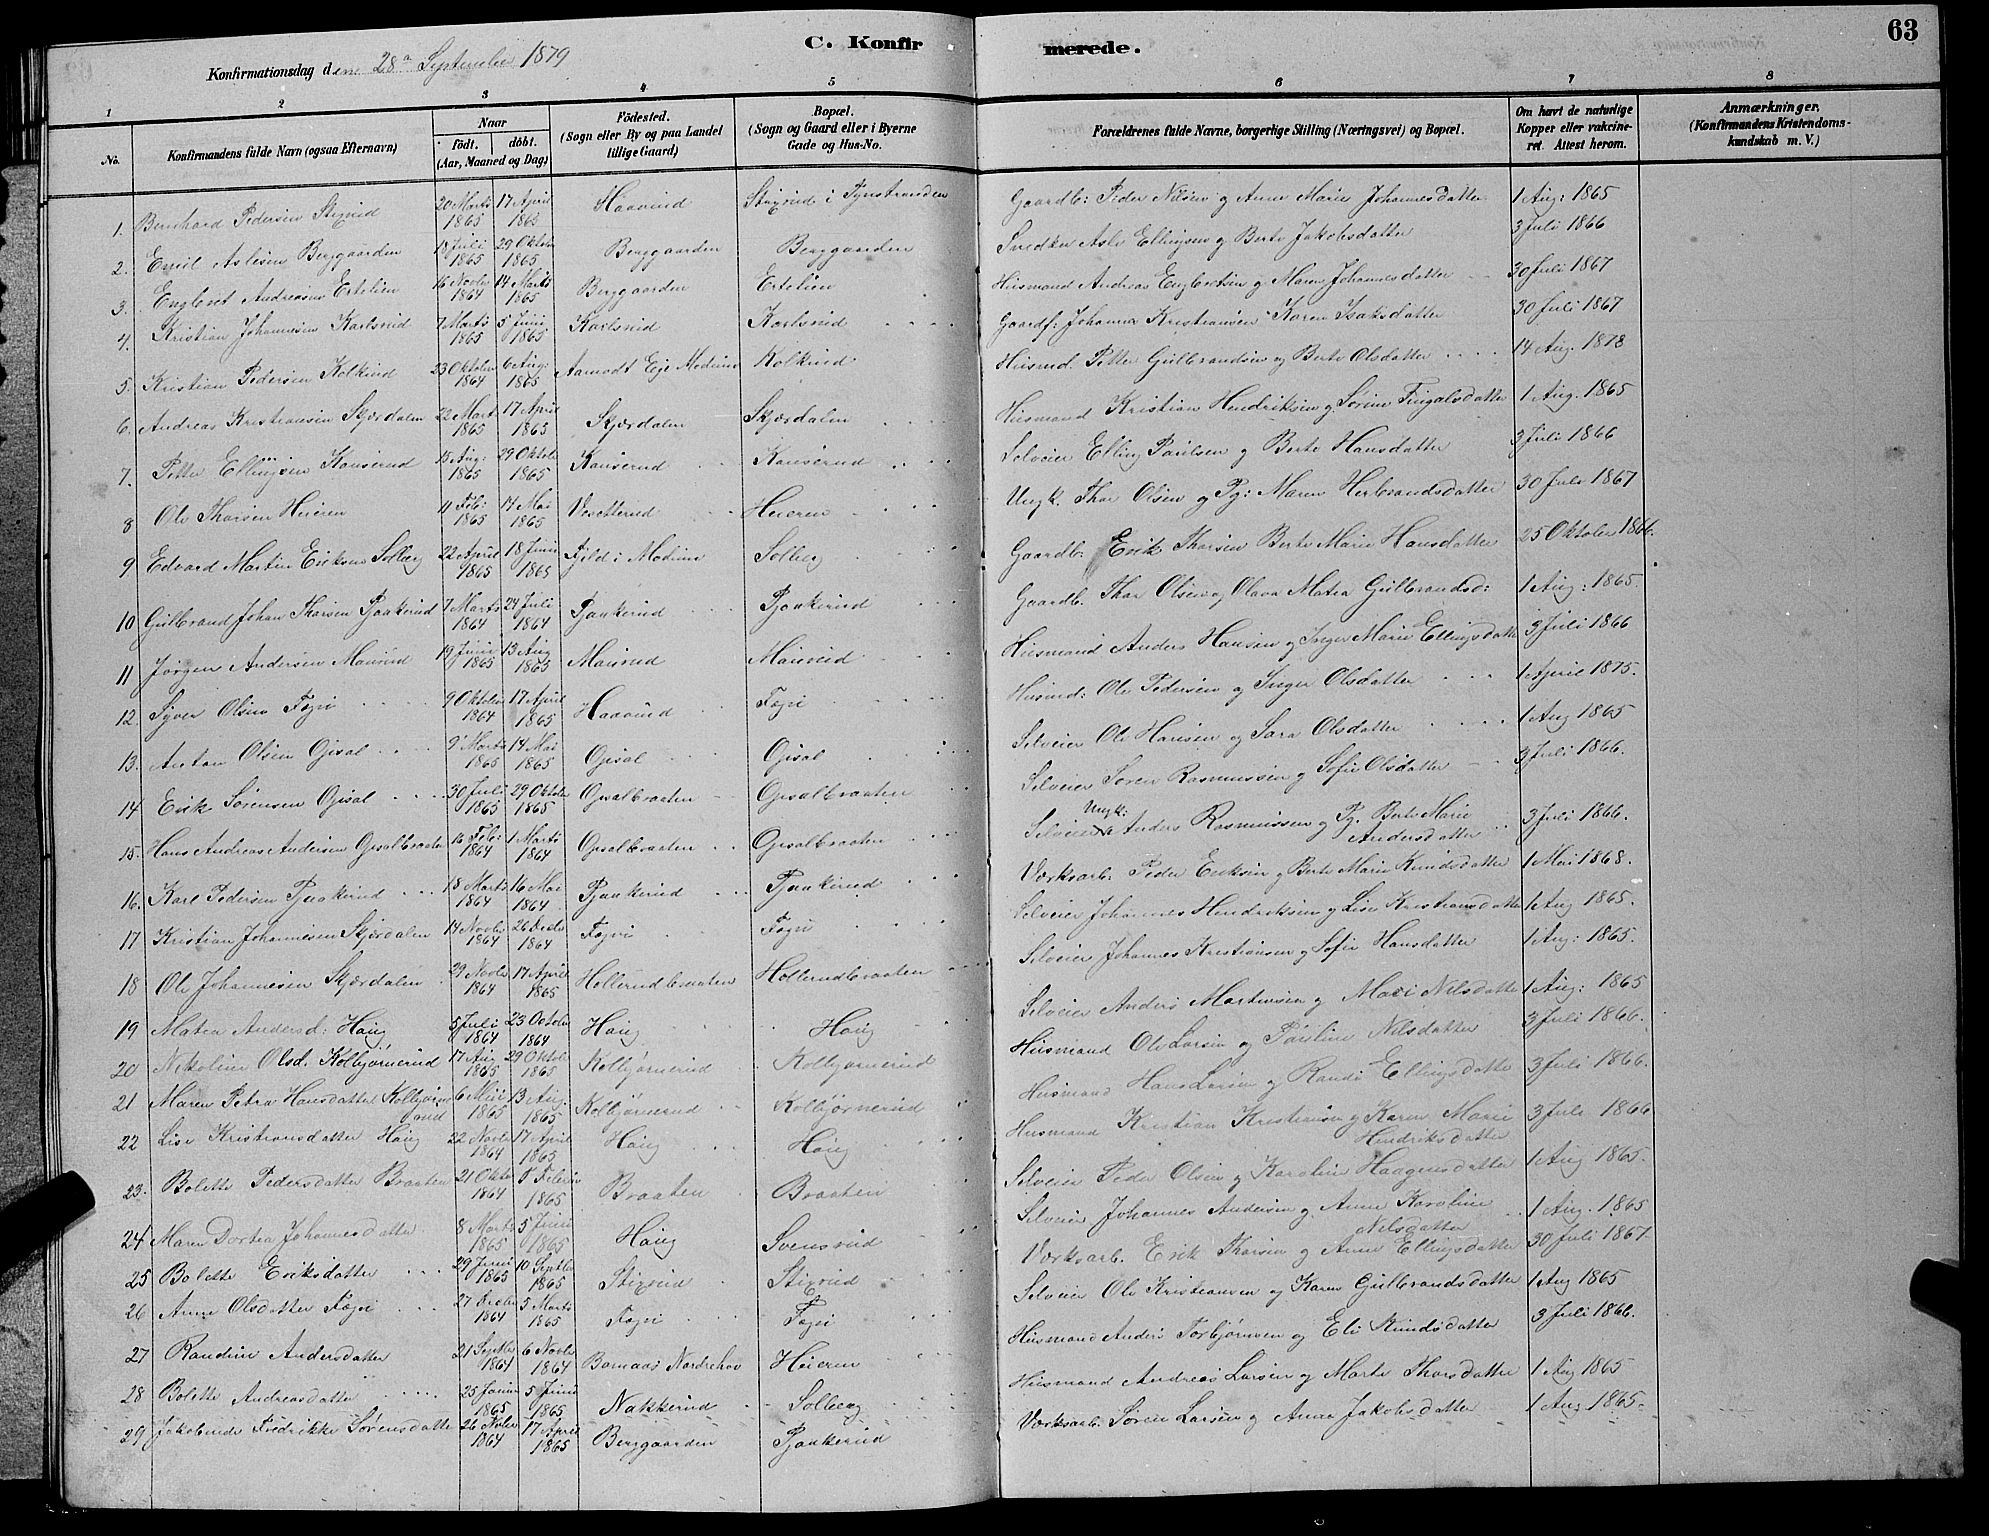 C. Konfirmerede.
63
Konfirmationsdag den 28a September 1879
1 2 3 4 5 6 7 8
No.
Konfirmandens fulde Navn (ogsaa Efternavn)
Naar
født. døbt.
(Aar, Maaned og Dag)
Födested.
(Sogn eller By og paa Landet
tillige Gaard)
Bopæl.
(Sogn og Gaard eller i Byerne
Gade og Hus-No.
Forældrenes fulde Navne, borgerlige Stilling (Næringsvei) og Bopæl.
Om havt de naturlige
Kopper eller vakcine-
ret. Attest herom.
Anmærkninger.
(Konfirmandens Kristendoms-
kundskab m. V.)
1. Bernhard Pedersen Stixrud 20 Marts 1865 17 April 1865 Haavind Stixrud i Tynstranden Gaardb: Peder Nilsen og Anne Marie Johannesdatter 1 Aug: 1865
2. Emil Aslesen Berggaarden Juli 1865 29 Oktober 1865 Berggaarden Berggaarden Snedker Asle Ellingsen og Berte Jakobsdatter 3 Juli 1866
3. Engebret Andreasen Ertelien 16 Novbr 1864 14 Marts 1865 Berggaarden Ertelien Husmand Andreas Engbretsen og Maren Johannesdatter 30 Juli 1867
4. Kristian Johannesen Karlsrud 7 Marts 1865 5 Juni 1865 Karlsrud Karlsrud Gaardf: Johannes Kristiansen Karen Isaksdatter 30 Juli 1867
5. Kristian Pedersen Kolkind 23 Oktober 1864 6 Aug: 1865 Aamodt Eje Modum Kolkind Husmd. Petter Gulbrandsen og Berte Olsdatter 14 Aug. 1878
6. Andreas Kristiansen Skjærdalen 22 Marts 1865 17 April 1865 Skjærdalen Skjærdalen Husmand Kristian Hendriksen og Sørine Fingalsdatter 1 Aug. 1865
7. Petter Ellingsen Kauserud 15 Aug: 1865 29 Oktober 1865 Kauserud Kauserud Selveier Elling Paulsen og Berte Hansdatter 3 Juli 1866
8 Ole Thorsen Heieren 11 Feb: 1865 14 Mai 1865 Vesetterud Heieren Ungk. Thor Olsen og Pg: Maren Herbrandsdatter 30 Juli 1867
9 Edvard Martin Eriksen Solberg 22 April 1865 18 Juni 1865 Fjeld i Modum Solberg Gaardb. Erik Thorsen Berte Marie Hansdatter 25 Oktober 1866.
10 Gulbrand Johan Thorsen Pjaakerud 7 Marts 1864 24 Juli 1864 Pjaakerud Pjaakerud Gaardb. Thor Olsen og Olava Matea Gulbrandsd: 1 Aug: 1865.
11 Jørgen Andersen Maurud 19 Juni 1865 13 Aug 1865 Maurud Maurud Husmand Anders Hansen og Inger Marie Ellingsdatter 3 Juli 1866
12. Syver Olsen Fegri 9 Oktober 1864 17 April 1865 Haavind Fegri Husmd: Ole Pedersen og Inger Olsdatter 1 April 1875.
13. Anton Olsen Opsal 9 Marts 1865 14 Mai 1865 Opsal Opsal Selveier Ole Hansen og Sara Olsdatter 1 Aug 1865
14 Erik Sørensen Opsal 30 Juli 1865 29 Oktober 1865 Opsalbraaten Opsalbraaten Selveier Søren Rasmussen og Sofie Olsdatter 3 Juli 1866.
15. Hans Andreas Andersen Opsalbraaten 16 Feb: 1864 1 Marts 1864 Opsalbraaten Opsalbraaten Selveier Ungk: Anders Rasmussen og Pg. Berte Marie Andersdatter 3 Juli 1866.
16. Karl Pedersen Pjaakerud 18 Marts 1864 16 Mai 1864 Pjaakerud Pjaakerud Værksarb. Peder Eriksen og Berte Marie Knudsdatter 1 Mai 1868.
17 Kristian Johannesen Skjærdalen 14 Novbr 1864 26 Decbr 1864 Fegri Fegri Selveier Johannes Hendriksen og Lise Kristiansdatter 1 Aug 1865.
18 Ole Johannesen Skjærdalen 29 Novbr 1864 17 April 1865 Hollerudbraaten Hollerudbraaten Selveier Johannes Kristiansen og Sofie Hansdatter 1 Aug: 1865.
19 Matea Andersd: Haug 5 Juli 1864 23 October 1864 Haug Haug Selveier Anders Martinsen og Mari Nilsdatter 1 Aug: 1865
20 Nikoline Olsd. Kolbjørnerud 17 Aug 1865 29 Oktober 1865 Kolbjørnerud Kolbjørnerud Husmand Ole Larsen og Pauline Nilsdatter 3 Juli 1866.
21 Maren Petra Hansdatter Kolbjørnerud 6 Mai 1865 13 Aug. 1865 Kolbjørnerud Kolbjørnerud Husmand Hans Larsen og Randi Ellingsdatter 3 Juli 1866.
22 Lise Kristiansdatter Haug 22 Novbr 1864 17 April 1865 Haug Haug Husmand Kristian Kristiansen og Karen Marie Hendriksdatter 3 Juli 1866
23. Bolette Pedersdatter Braaten 21 Oktbr 1864 Februar 1865 Braaten Braaten Selveier Peder Olsen og Karoline Haagensdatter 1 Aug 1865.
24 Maren Dortea Johannesdatter 8 Marts 1865 5 Juni 1865 Haug Svensrud Selveier Johannes Andersen og Anne Karoline Nilsdatter 1 Aug. 1865
25 Bolette Eriksdatter 29 Juni 1865 10 Septbr 1865 Stixrud Stixrud Værksarb. Erik Thorsen og Anne Ellingsdatter 30 Juli 1867.
26 Anne Olsdatter Fegri 27 Decbr 1864 5 Marts 1865 Fegri Fegri Selveier Ole Kristiansen og Karen Gulbrandsdatter 1 Aug 1865
27 Randine Andersdatter 21 Septbr 1864 6 Novbr 1864 Bomaas Norderhov Heieren Husmand Anders Torbjørnsen og Eli Knudsdatter 3 Juli 1866.
28 Bolette Andreasdatter 25 Januar 1865 5 Juni 1865 Nakkerud Solberg Husmand Andreas Larsen og Marte Thorsdatter 1 Aug 1865
29 Jakobine Fredrikke Sørensdatter 26 Novbr 1864 17 April 1865 Berggaarden Pjaakerud Værksarb. Søren Larsen og Anne Jakobsdatter 1 Aug 1865.